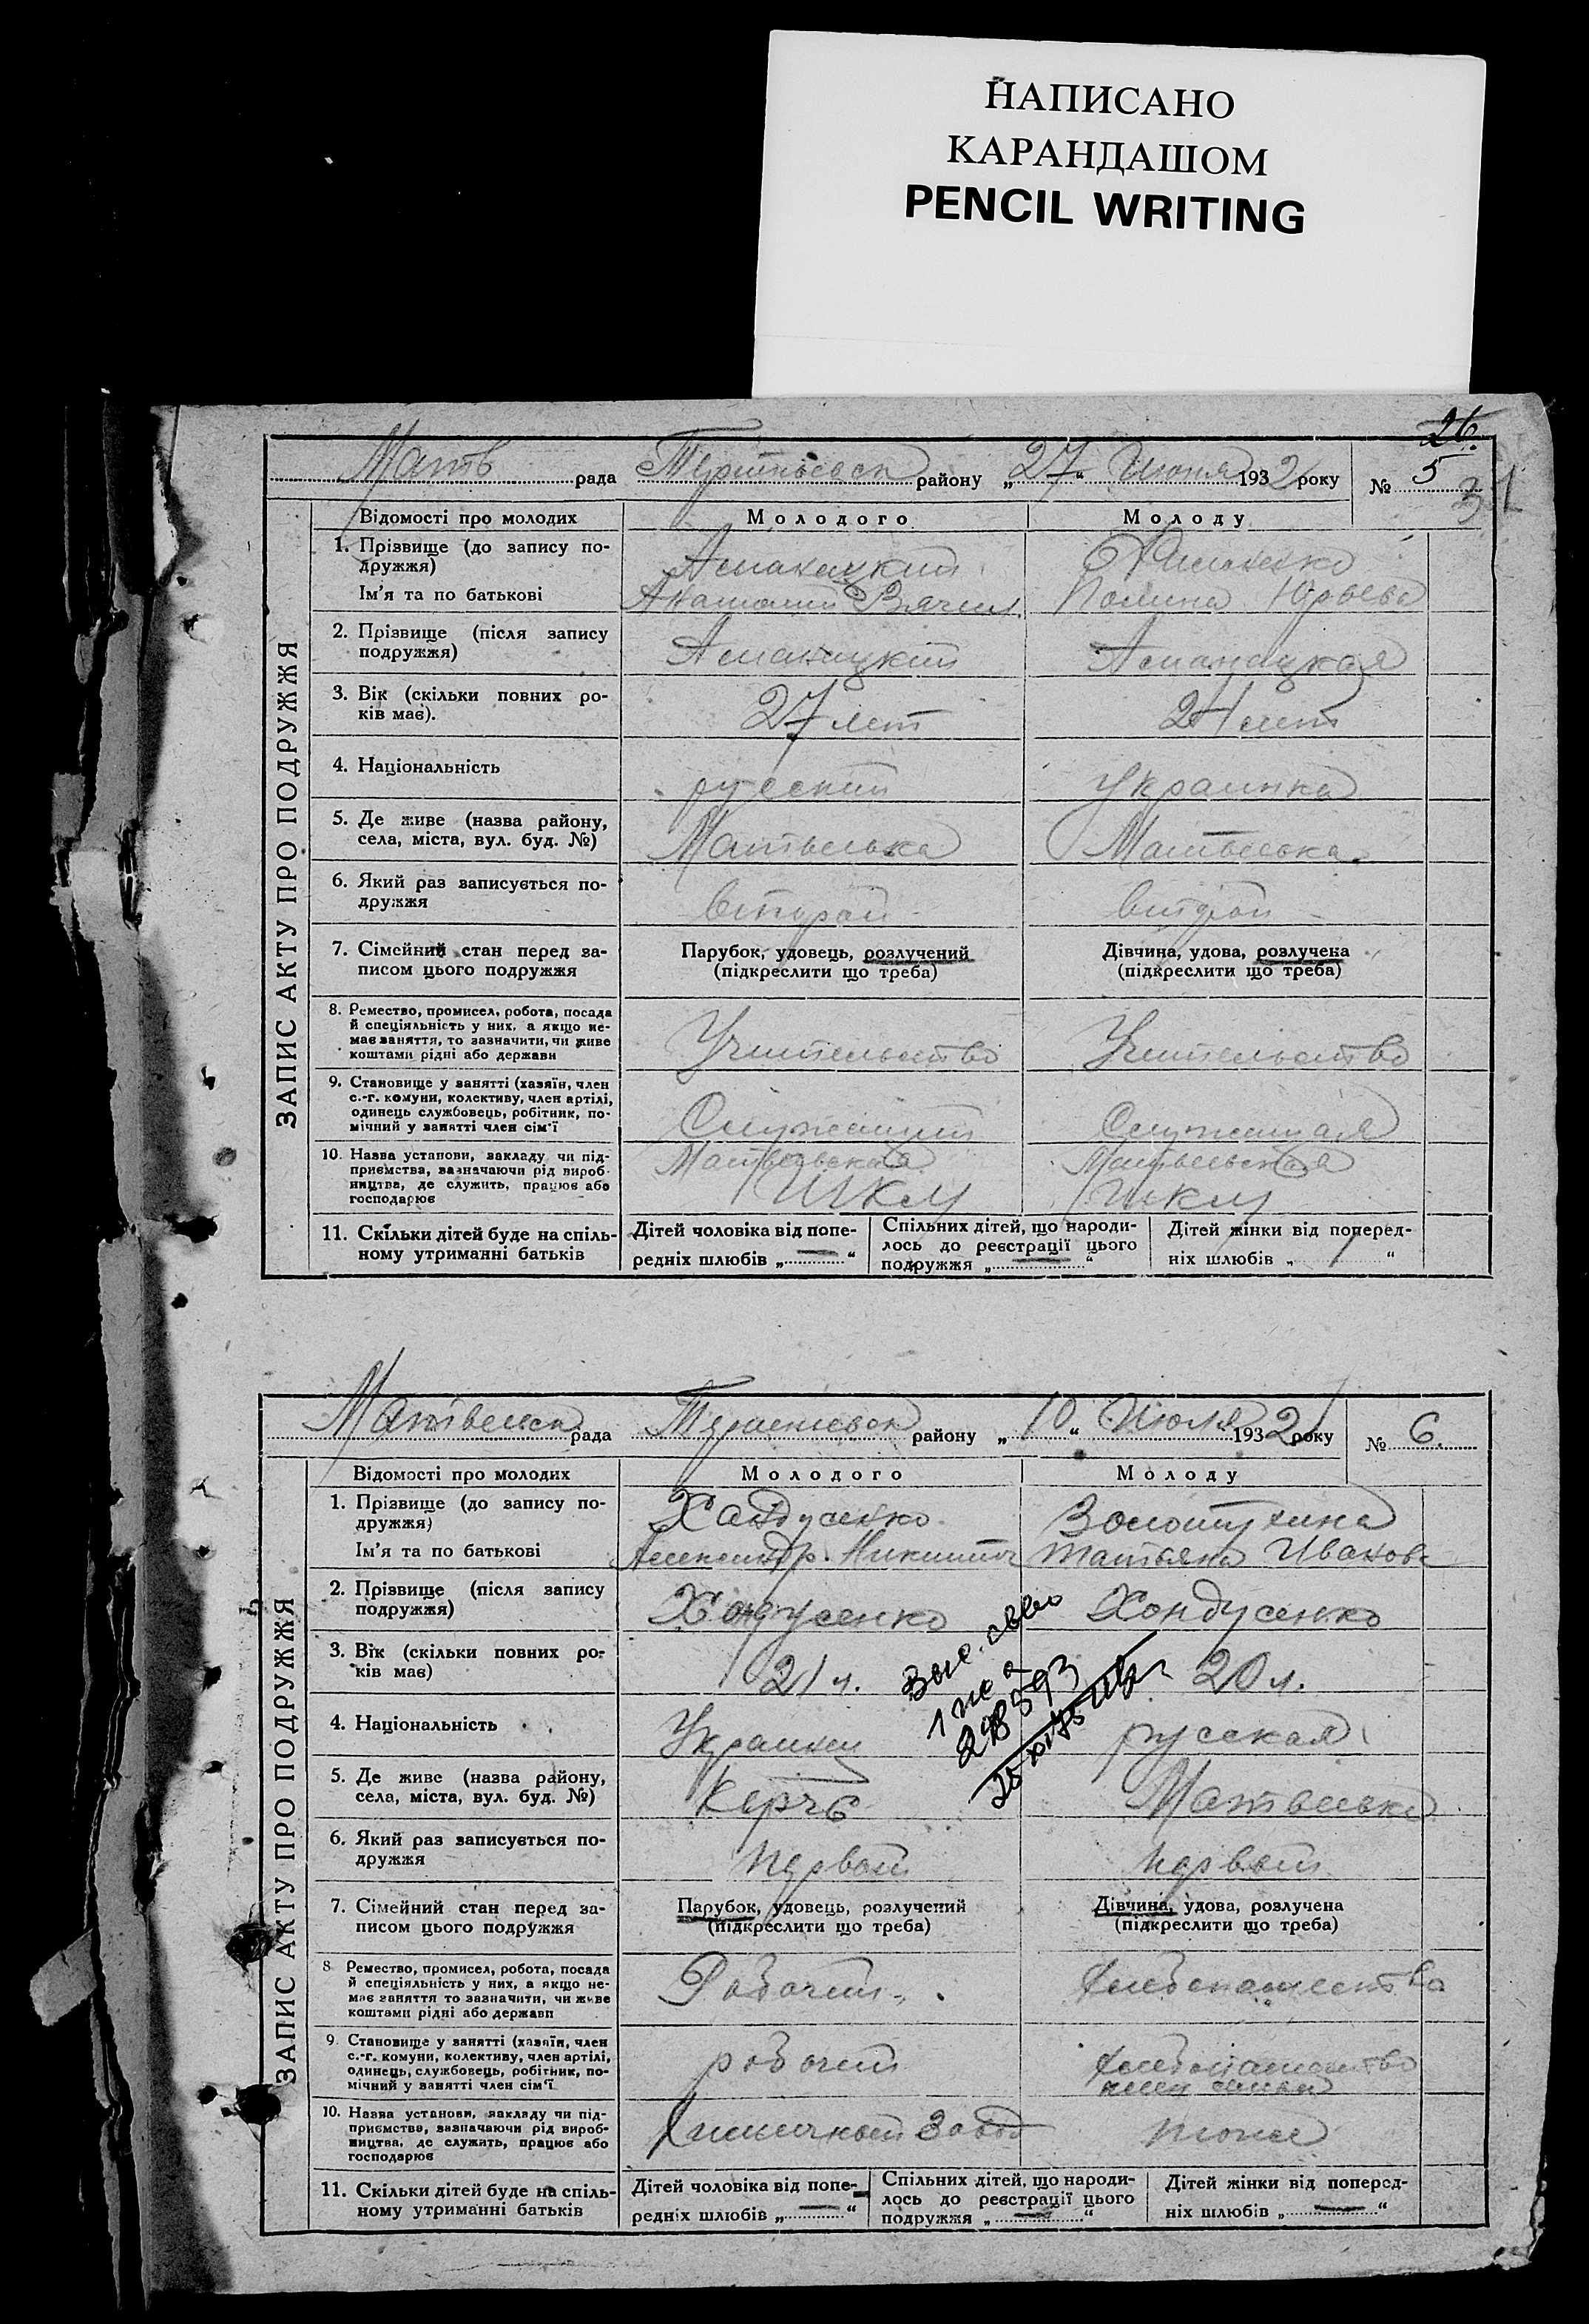 НАПИСАНО
КАРАНДАШОМ
PENCIL WRITING
26.
31
Матв рада району „27“ Июня 1932 року № 5
ЗАПИС АКТУ ПРО ПОДРУЖЖЯ
Відомості про молодих Молодого Молоду
1. Прізвище (до запису по-
дружжя)
Ім’я та по батькові Анатолий Вячесл. Полина Юрьева
2. Прізвище (після запису
подружжя)
3. Вік (скільки повних ро-
ків має). 27 лет 24 лет
4. Національність русский Украинка
5. Де живе (назва району,
села, міста, вул. буд. №) Матвеевка Матвеевка
6. Який раз записується по-
дружжя второй второй
7. Сімейний стан перед за-
писом цього подружжя
Парубок, удовець, розлучений
(підкреслити що треба)
Дівчина, удова, розлучена
(підкреслити що треба)
8. Ремество, промисел, робота, посада
й спеціяльність у них, а якщо не-
має заняття, то зазначити, чи живе
коштами рідні або держави
Учительство Учительство
9. Становище у занятті (хазяїн, член
с.-г. комуни, колективу, член артілі,
одинець службовець, робітник, по-
мічний у занятті член сім’ї
Служащий Служащая
10. Назва установи, закладу чи під-
приємства, зазначаючи рід вироб-
ництва, де служить, працює або
господарює
Матвеевская Матвеевская
ШКМ ШКМ
11. Скільки дітей буде на спіль-
ному утриманні батьків
Дітей чоловіка від попе-
редніх шлюбів „—“
Спільних дітей, що народи-
лось до реєстрації цього
подружжя „—“
Дітей жінки від поперед-
ніх шлюбів „1“
Матвеевск рада району „10“ Июля 1932 року № 6.
ЗАПИС АКТУ ПРО ПОДРУЖЖЯ
Відомості про молодих Молодого Молоду
1. Прізвище (до запису по-
дружжя) Хандусенко Золотухина
Ім’я та по батькові Александр Никитич Татьяна Иванова
2. Прізвище (після запису
подружжя) Хондусенко Хондусенко
3. Вік (скільки повних ро-
ків має) 21 л. 20 л.
4. Національність Украинец русская
5. Де живе (назва району,
села, міста, вул. буд. №) Керчь Матвеевка
6. Який раз записується по-
дружжя первый первый
7. Сімейний стан перед за-
писом цього подружжя
Парубок, удовець, розлучений
(підкреслити що треба)
Дівчина, удова, розлучена
(підкреслити що треба)
8 Ремество, промисел, робота, посада
й спеціяльність у них, а якщо не-
має заняття то зазначити, чи живе
коштами рідні або держави
Рабочий Хлебопашество
9. Становище у занятті (хазяїн, член
с.-г. комуни, колективу, член артілі,
одинець, службовець, робітник, по-
мічний у занятті член сім’ї
рабочий Хлебопашество
член семьи
10. Назва установи, закладу чи під-
приємства, зазначаючи рід вироб-
ництва, де служить, працює або
господарює
завод тоже
11. Скільки дітей буде на спіль-
ному утриманні батьків
Дітей чоловіка від попе-
редніх шлюбів „—“
Спільних дітей, що народи-
лось до реєстрації цього
подружжя „—“
Дітей жінки від поперед-
ніх шлюбів „—“